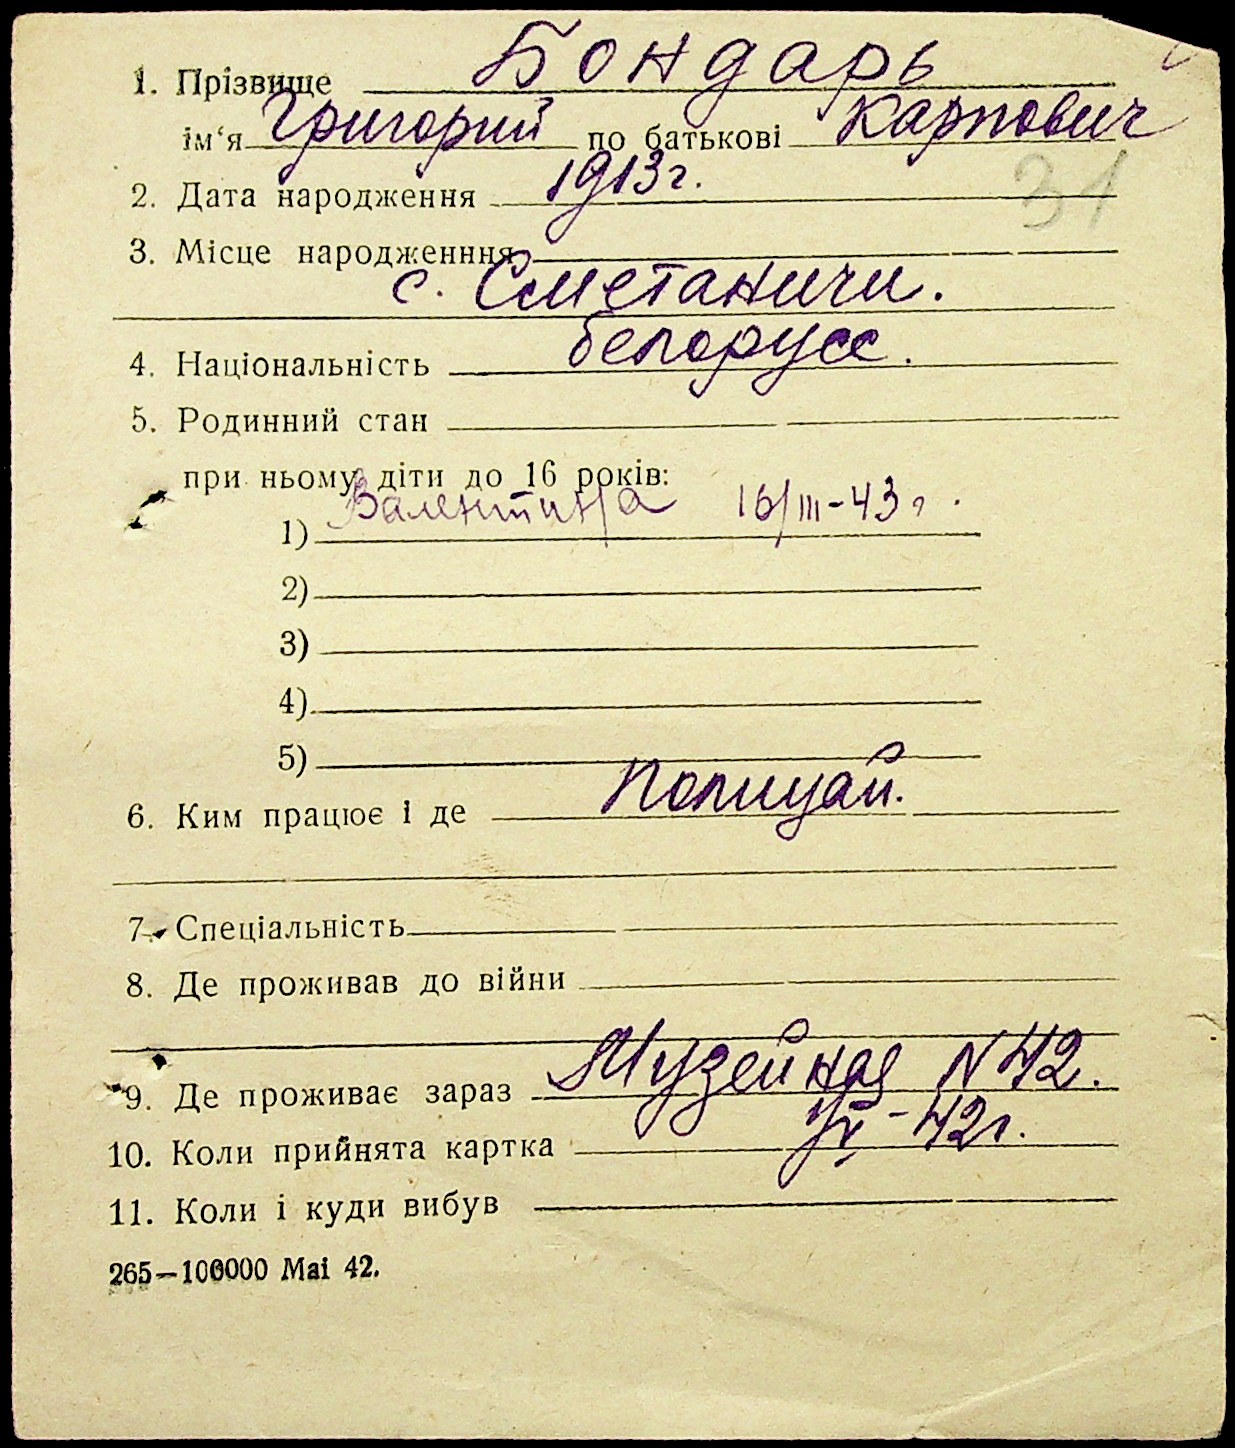 1. Прізвище Бондарь
ім‘я Григорий по батькові Карпович
2. Дата народження 1913г.
31
3. Місце народженння
с. Сметаничи.
4. Національність белорусс.
5. Родинний стан
при ньому діти до 16 років:
1) Валентина 16/III-43г.
2)
3)
4)
5)
6. Ким працює і де Полицай.
7. Спеціальність
8. Де проживав до війни
9. Де проживає зараз Музейная N 42.
10. Коли прийнята картка -42г.
11. Коли і куди вибув
265—100000 Mai 42.